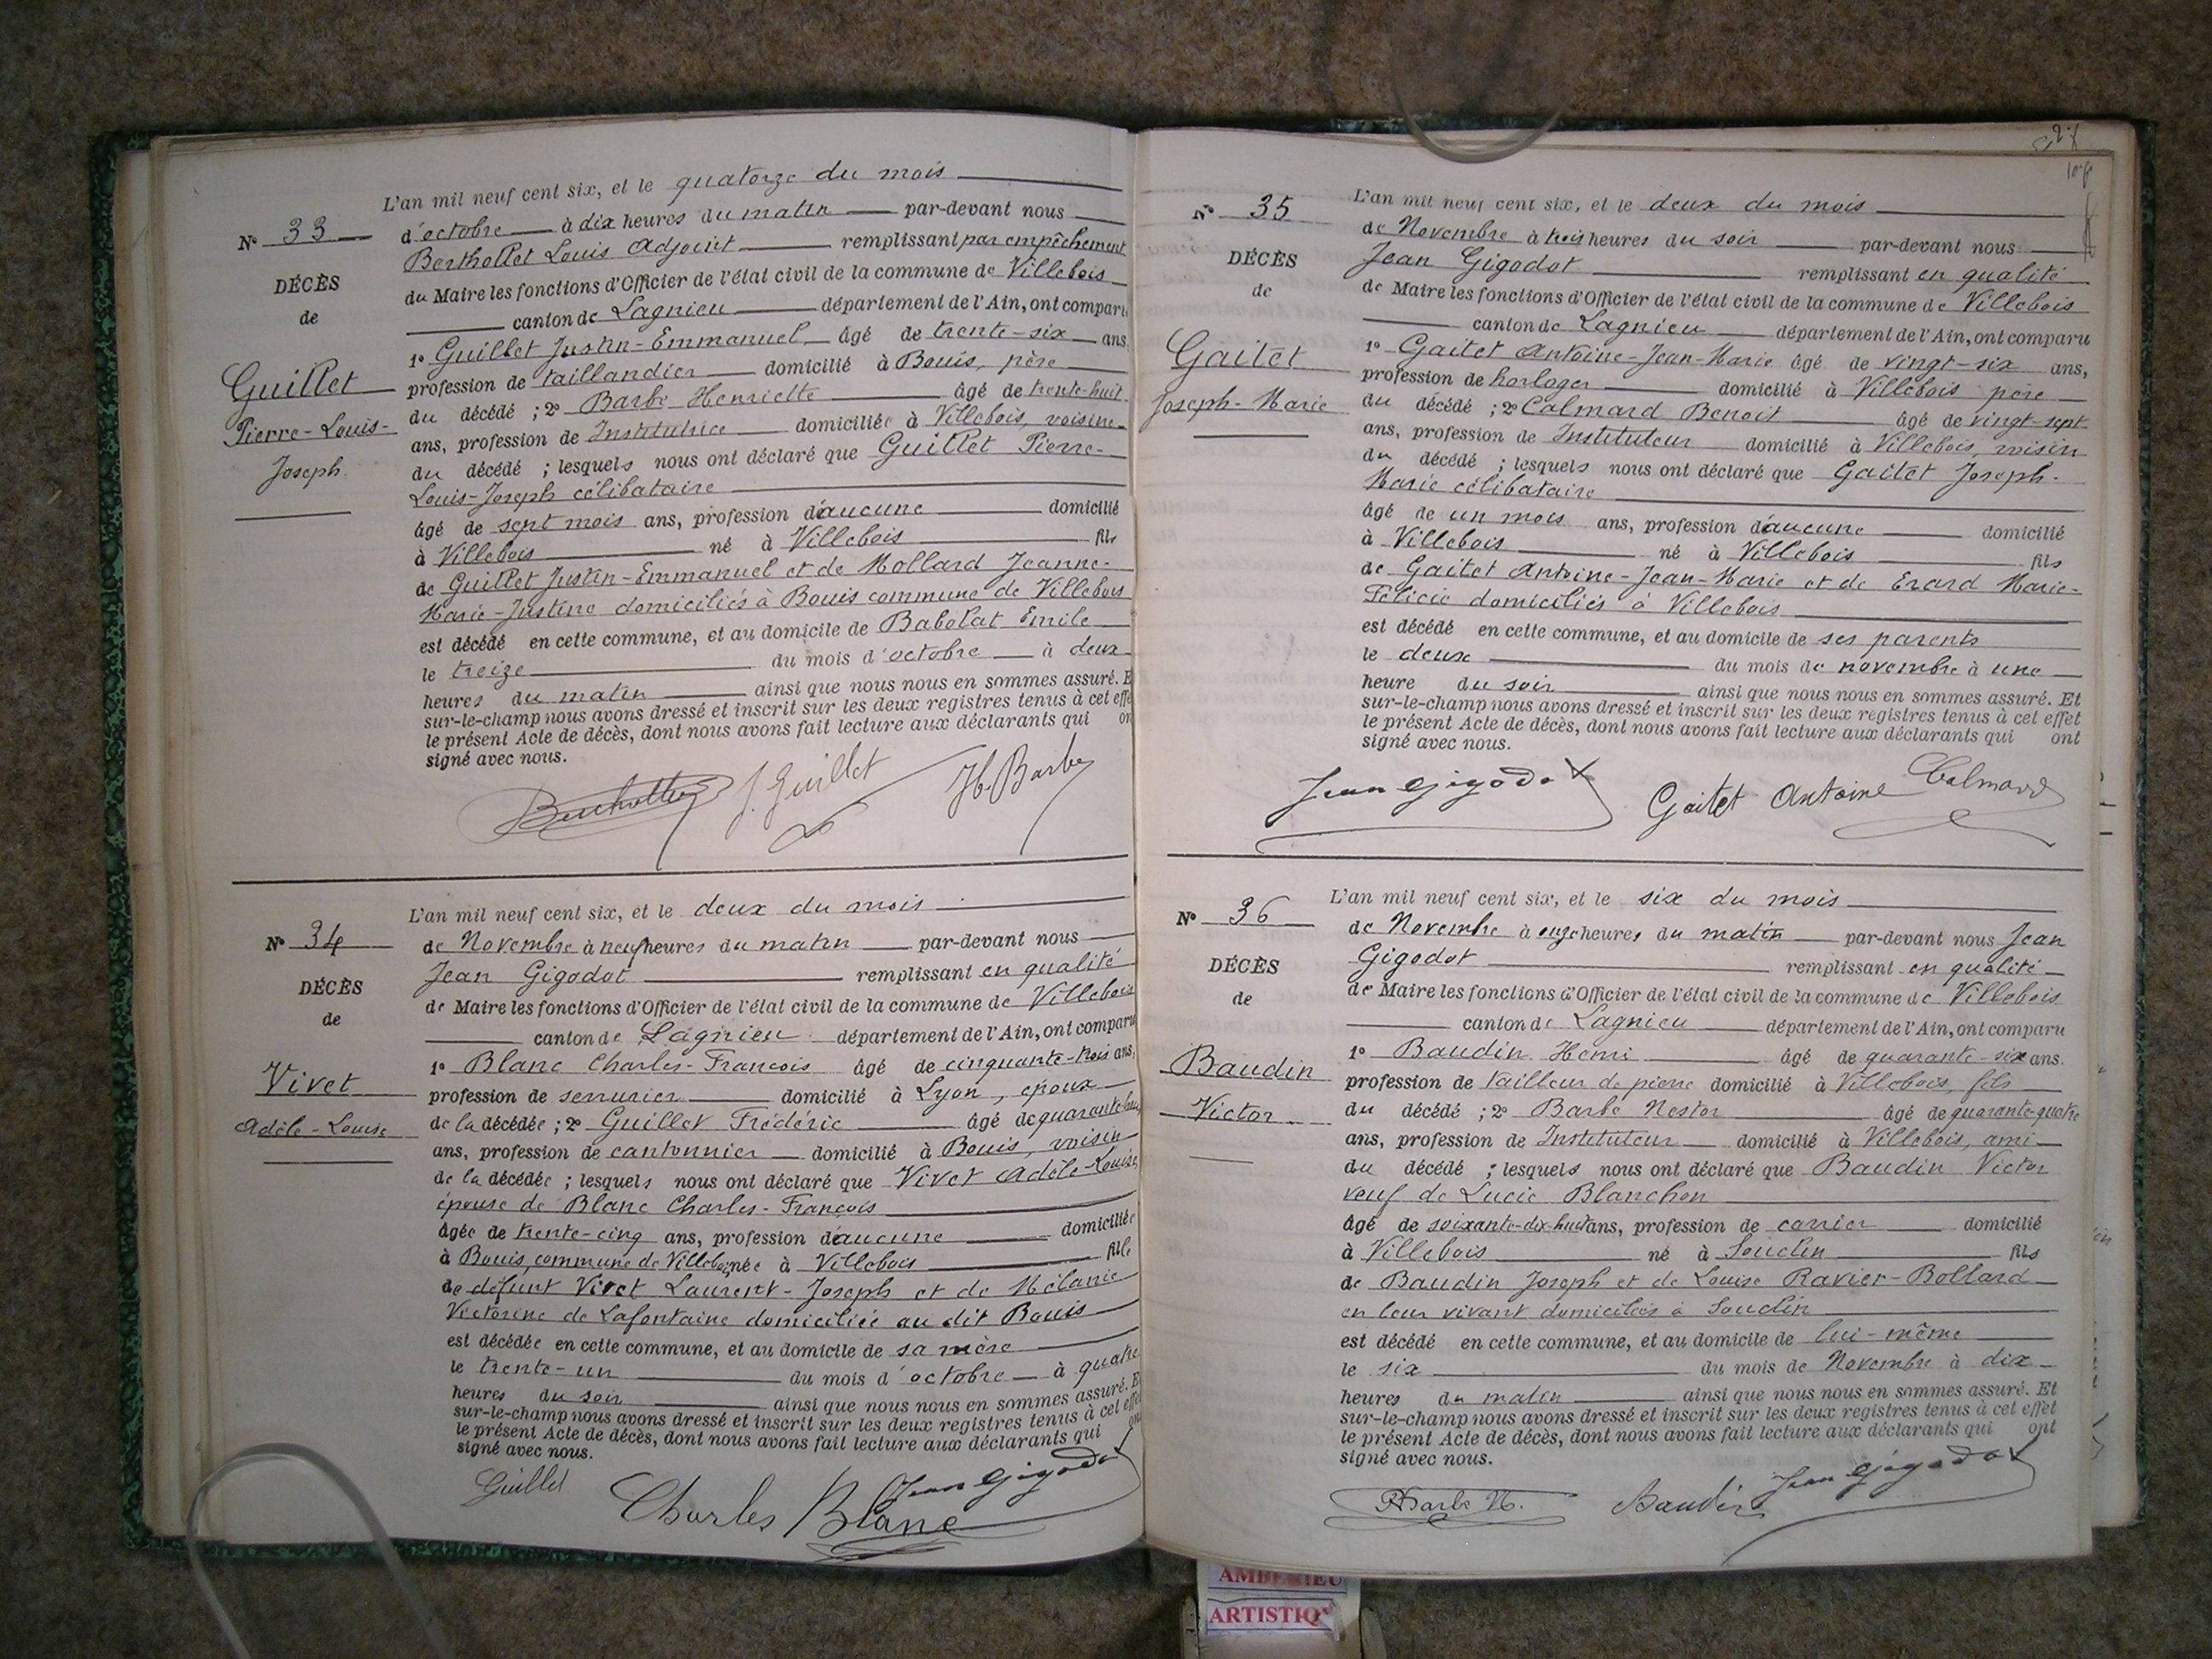 L'an mil neuf cent six, et le quatorze du mois
Nº 33
d'octobre à dix heures du matin par-devant nous
Berthollet Louis Adjoint remplissant par empêchement
DÉCÈS
du Maire les fonctions d'Officier de l'état civil de la commune de Villebois
de
canton de Lagnieu département de l'Ain, ont comparu
1º Guillet Justin-Emmanuel âgé de trente-six ans
Guillet
profession de taillandier domicilié à Bouis, père
du décédé ; 2º Barbe Henriette âgé de trente-huit
Pierre-Louis-
ans, profession de Institutrice domiciliée à Villebois, voisine
Joseph
du décédé ; lesquels nous ont déclaré que Guillet Pierre-
Louis-Joseph célibataire
âgé de sept mois ans, profession d'aucune domicilié
à Villebois né à Villebois fils
de Guillet Justin-Emmanuel et de Mollard Jeanne-
Marie-Justine domiciliés à Bouis commune de Villebois
est décédé en cette commune, et au domicile de Babolat Emile
le treize du mois d'octobre à deux
heures du matin ainsi que nous nous en sommes assuré. E
sur-le-champ nous avons dressé et inscrit sur les deux registres tenus à cet effe
le présent Acte de décès, dont nous avons fait lecture aux déclarants qui on
signé avec nous.
Berthollet J. Guillet H. Barbe
L'an mil neuf cent six, et le deux du mois
Nº 34
de Novembre à neuf heures du matin par-devant nous
Jean Gigodot remplissant en qualité
DÉCÈS
de Maire les fonctions d'Officier de l'état civil de la commune de Villebois
de
canton de Lagnieu département de l'Ain, ont comparu
1º Blanc Charles-François âgé de cinquante-trois ans,
Vivet
profession de serrurier domicilié à Lyon, époux
Adèle-Louise
de la décédée ; 2º Guillet Frédéric âgé de
ans, profession de cantonnier domicilié à Bouis, voisin
de la décédée ; lesquels nous ont déclaré que Vivet Adèle-Louise,
épouse de Blanc Charles-François
âgée de trente-cinq ans, profession d'aucune domiciliée
à Bouis, commune de Villebois née à Villebois fille
de défunt Vivet Laurent-Joseph et de Mélanie
Victorine de Lafontaine domiciliée au dit Bouis
est décédée en cette commune, et au domicile de sa mère
le trente-un du mois d'octobre à quatre
heures du soir ainsi que nous nous en sommes assuré. E
sur-le-champ nous avons dressé et inscrit sur les deux registres tenus à cet effet
le présent Acte de décès, dont nous avons fait lecture aux déclarants qui ont
signé avec nous.
Guillet Charles Blanc Jean Gigodot
L'an mil neuf cent six, et le deux du mois
Nº 35
de Novembre à trois heures du soir par-devant nous
DÉCÈS
Jean Gigodot remplissant en qualité
de
de Maire les fonctions d'Officier de l'état civil de la commune de Villebois
canton de Lagnieu département de l'Ain, ont comparu
Gaitet
1º Gaitet Antoine-Jean-Marie âgé de vingt-six ans,
profession de horloger domicilié à Villebois père
Joseph-Marie
du décédé ; 2º Calmard Benoit âgé de vingt-sept
ans, profession de Instituteur domicilié à Villebois, voisin
du décédé ; lesquels nous ont déclaré que Gaitet Joseph-
Marie célibataire
âgé de un mois ans, profession d'aucune domicilié
à Villebois né à Villebois fils
de Gaitet Antoine-Jean-Marie et de Erard Marie-
Félicie domiciliés à Villebois
est décédé en cette commune, et au domicile de ses parents
le deux du mois de novembre à une
heure du soir ainsi que nous nous en sommes assuré. Et
sur-le-champ nous avons dressé et inscrit sur les deux registres tenus à cet effet
le présent Acte de décès, dont nous avons fait lecture aux déclarants qui ont
signé avec nous.
Jean Gigodot Gaitet Antoine Calmard
L'an mil neuf cent six, et le six du mois
Nº 36
de Novembre à onze heures du matin par-devant nous Jean
Gigodot remplissant en qualité
DÉCÈS
de Maire les fonctions d'Officier de l'état civil de la commune de Villebois
de
canton de Lagnieu département de l'Ain, ont comparu
1º Baudin Henri âgé de quarante-six ans.
Baudin
profession de tailleur de pierre domicilié à Villebois, fils
Victor
du décédé ; 2º Barbe Nestor âgé de quarante-quatre
ans, profession de Instituteur domicilié à Villebois, ami
du décédé ; lesquels nous ont déclaré que Baudin Victor
veuf de Lucie Blanchon
âgé de soixante-dix-huit ans, profession de carrier domicilié
à Villebois né à Souclin fils
de Baudin Joseph et de Louise Ravier-Bollard
en leur vivant domiciliés à Souclin
est décédé en cette commune, et au domicile de lui-même
le six du mois de Novembre à dix
heures du matin ainsi que nous nous en sommes assuré. Et
sur-le-champ nous avons dressé et inscrit sur les deux registres tenus à cet effet
le présent Acte de décès, dont nous avons fait lecture aux déclarants qui ont
signé avec nous.
Barbe N. Baudin Jean Gigodot
AMBERIEU
ARTISTIQ